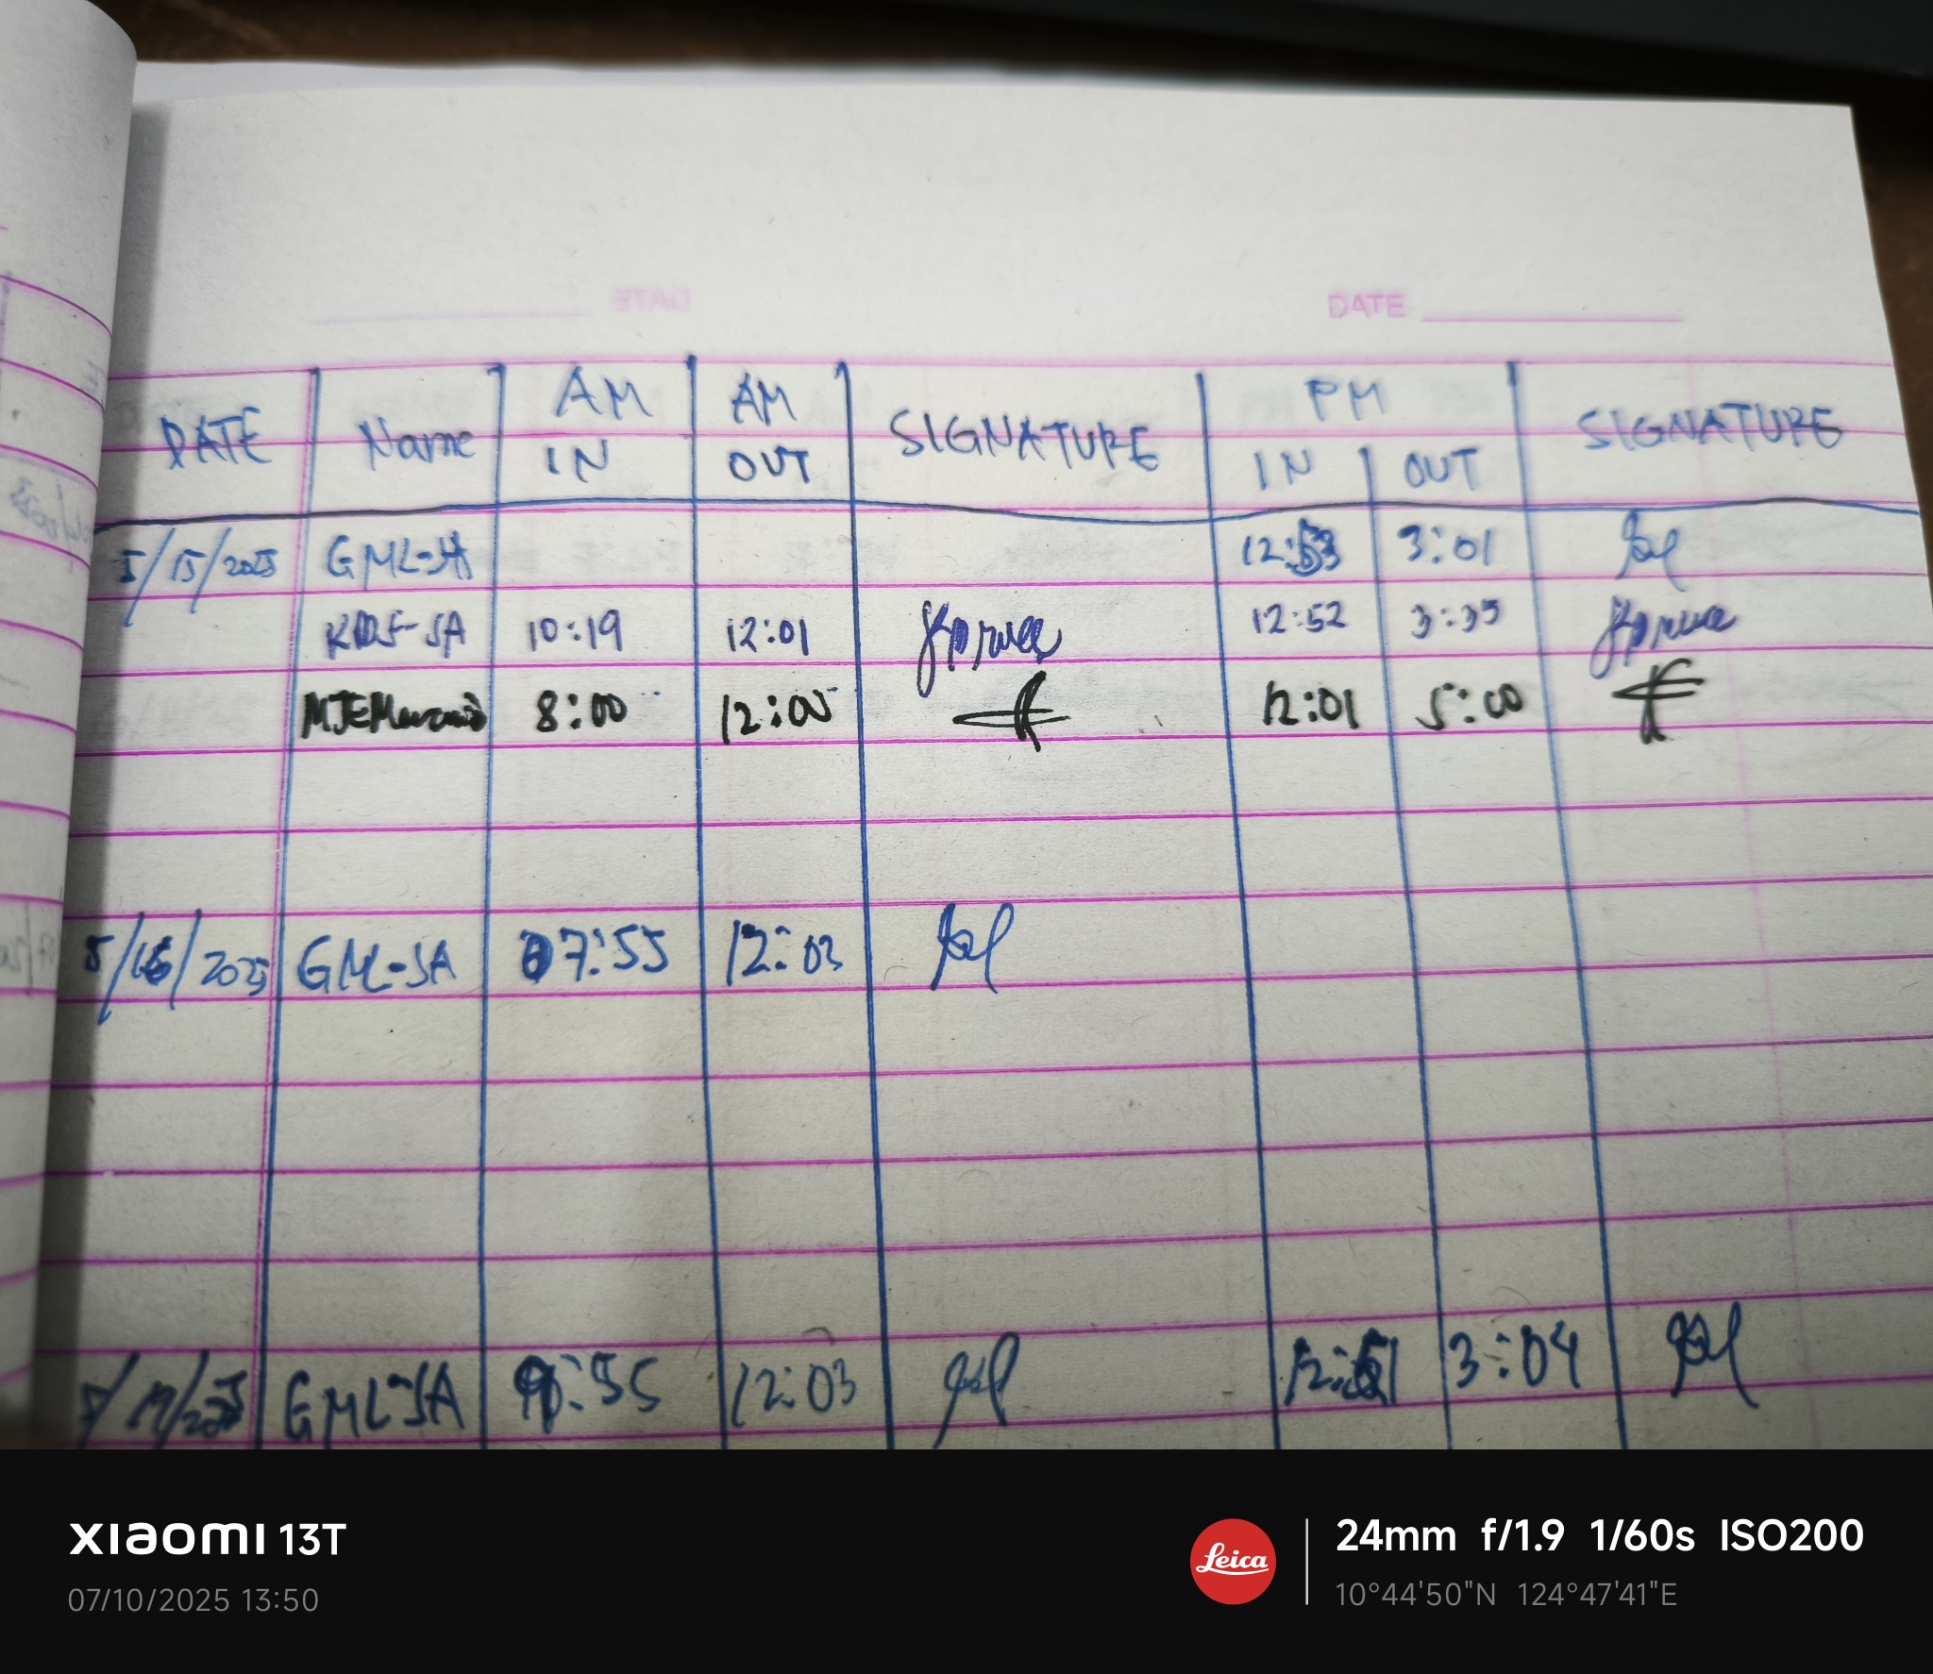 DATE
DATE Name AM IN AM OUT SIGNATURE PM IN OUT SIGNATURE
5/15/2025 GML-SA 12:53 3:01
KDS-SA 10:19 12:01 12:52 3:35
8:00 12:00 12:01 5:00
5/16/2025 GML-SA 07:55 12:03
GML-SA :55 12:03 12:51 3:04
XIAOMI 13T
07/10/2025 13:50
Leica
24mm f/1.9 1/60s ISO200
10°44'50"N 124°47'41"E